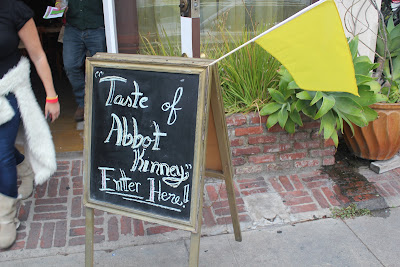 "Taste of
Abbot
Kinney"
Enter Here!